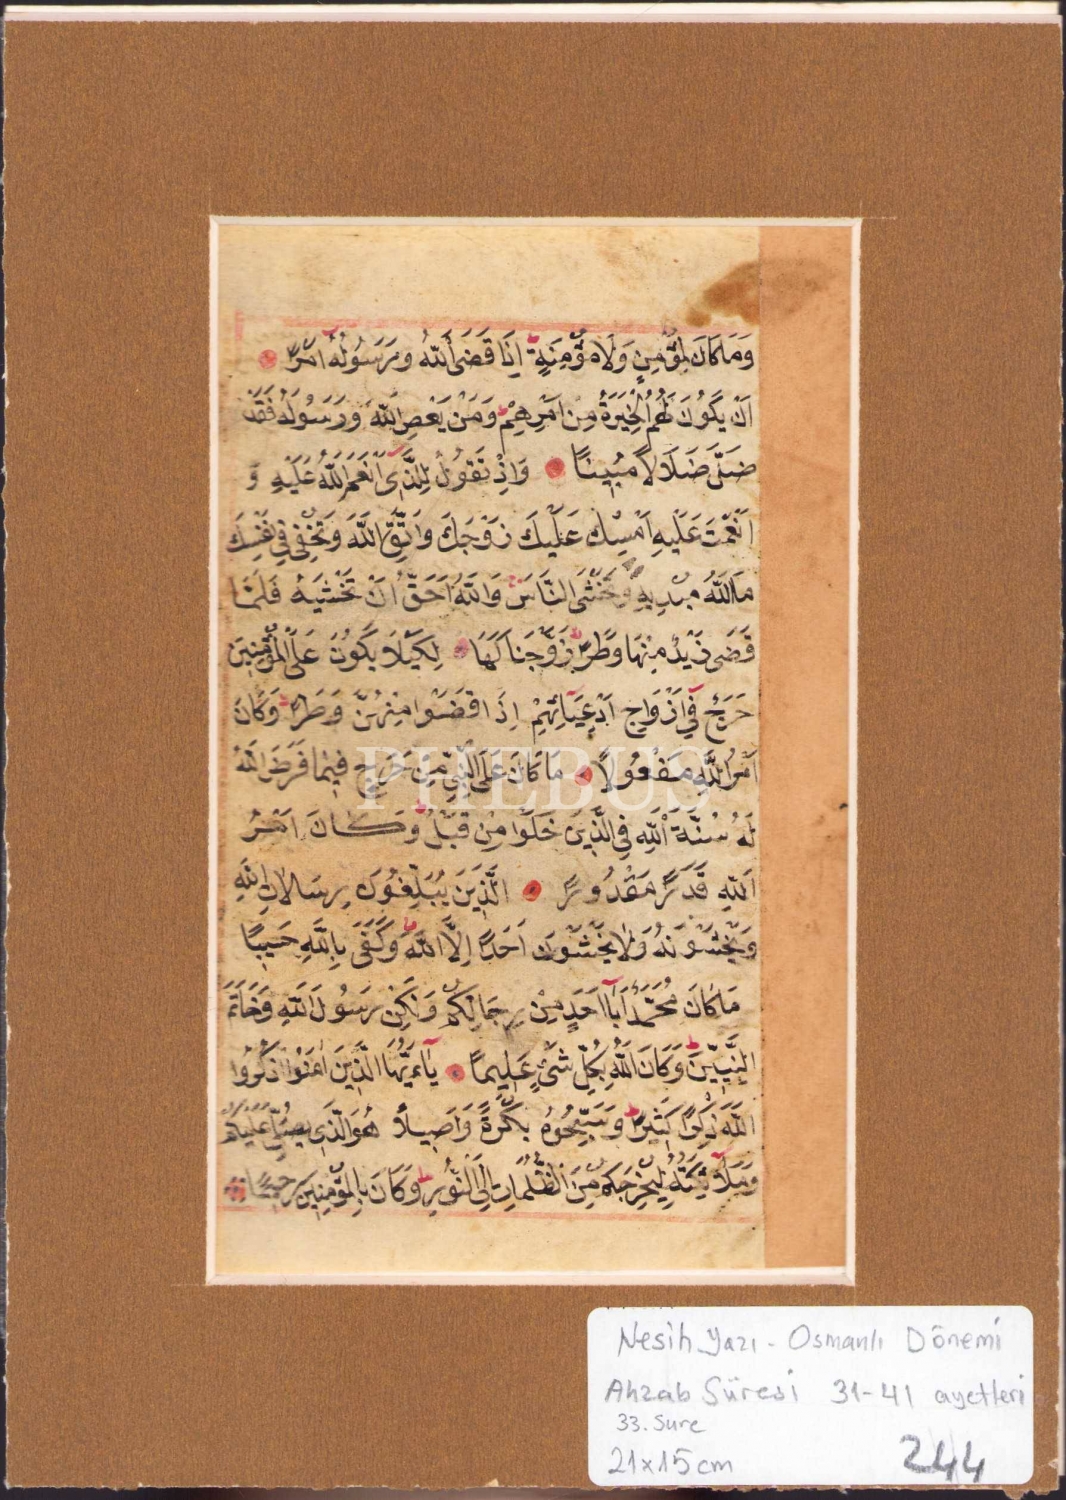 وَمَا كَانَ لِمُؤْمِنٍ وَلَا مُؤْمِنَةٍ اِذَا قَضَى اللّٰهُ وَرَسُولُهُ اَمْرًا
اَنْ يَكُونَ لَهُمُ الْخِيَرَةُ مِنْ اَمْرِهِمْ وَمَنْ يَعْصِ اللّٰهَ وَرَسُولَهُ فَقَدْ
ضَلَّ ضَلَالًا مُبِينًا وَاِذْ تَقُولُ لِلَّذِى اَنْعَمَ اللّٰهُ عَلَيْهِ وَ
اَنْعَمْتَ عَلَيْهِ اَمْسِكْ عَلَيْكَ زَوْجَكَ وَاتَّقِ اللّٰهَ وَتُخْفِى فِى نَفْسِكَ
مَا اللّٰهُ مُبْدِيهِ وَتَخْشَى النَّاسَ وَاللّٰهُ اَحَقُّ اَنْ تَخْشٰيهُ فَلَمَّا
قَضٰى زَيْدٌ مِنْهَا وَطَرًا زَوَّجْنَاكَهَا لِكَيْلَا يَكُونَ عَلَى الْمُؤْمِنِينَ
حَرَجٌ فِى اَزْوَاجِ اَدْعِيَائِهِمْ اِذَا قَضَوْا مِنْهُنَّ وَطَرًا وَكَانَ
اَمْرُ اللّٰهِ مَفْعُولًا مَا كَانَ عَلَى النَّبِىِّ مِنْ حَرَجٍ فِيمَا فَرَضَ اللّٰهُ
لَهُ سُنَّةَ اللّٰهِ فِى الَّذِينَ خَلَوْا مِنْ قَبْلُ وَكَانَ اَمْرُ
اللّٰهِ قَدَرًا مَقْدُورًا الَّذِينَ يُبَلِّغُونَ رِسَالَاتِ اللّٰهِ
وَيَخْشَوْنَهُ وَلَا يَخْشَوْنَ اَحَدًا اِلَّا اللّٰهَ وَكَفٰى بِاللّٰهِ حَسِيبًا
مَا كَانَ مُحَمَّدٌ اَبَا اَحَدٍ مِنْ رِجَالِكُمْ وَلٰكِنْ رَسُولَ اللّٰهِ وَخَاتَمَ
النَّبِيِّينَ وَكَانَ اللّٰهُ بِكُلِّ شَىْءٍ عَلِيمًا يَاءَيُّهَا الَّذِينَ اٰمَنُوا اذْكُرُوا
اللّٰهَ ذِكْرًا كَثِيرًا وَسَبِّحُوهُ بُكْرَةً وَاَصِيلًا هُوَ الَّذِى يُصَلِّى عَلَيْكُمْ
وَمَلَائِكَتُهُ لِيُخْرِجَكُمْ مِنَ الظُّلُمَاتِ اِلَى النُّورِ وَكَانَ بِالْمُؤْمِنِينَ رَحِيمًا
PHEBUS
Nesih Yazı - Osmanlı Dönemi
Ahzab Sûresi 31-41 ayetleri
33. Sure
21x15 cm
244